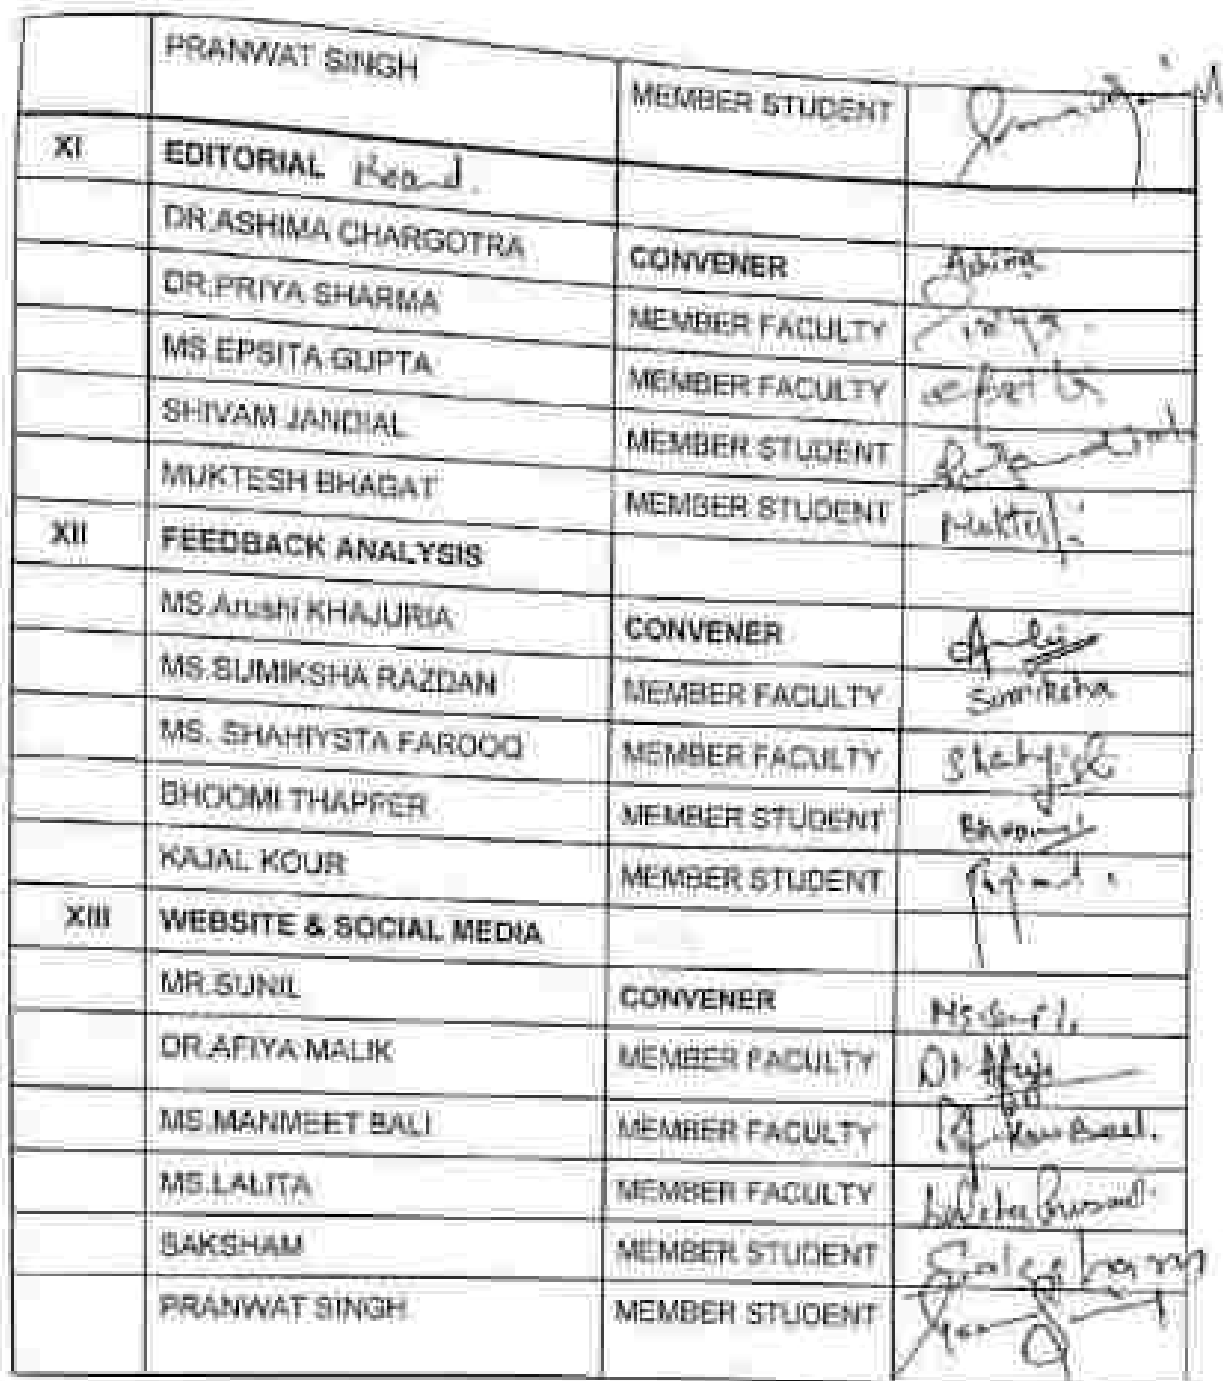 PRANWAT SINGH MEMBER STUDENT
XI EDITORIAL Board.
DR.ASHIMA CHARGOTRA CONVENER Ashima
DR.PRIYA SHARMA MEMBER FACULTY Priya
MS.EPSITA GUPTA MEMBER FACULTY
SHIVAM JANDIAL MEMBER STUDENT
MUKTESH BHAGAT MEMBER STUDENT
XII FEEDBACK ANALYSIS
MS.Arushi KHAJURIA CONVENER
MS.SUMIKSHA RAZDAN MEMBER FACULTY Sumiksha
MS. SHAHIYSTA FAROOQ MEMBER FACULTY
BHOOMI THAPPER MEMBER STUDENT Bhoomi
KAJAL KOUR MEMBER STUDENT
XIII WEBSITE & SOCIAL MEDIA
MR.SUNIL CONVENER
DR.AFIYA MALIK MEMBER FACULTY Dr. Afiya
MS.MANMEET BALI MEMBER FACULTY
MS.LALITA MEMBER FACULTY
SAKSHAM MEMBER STUDENT Saksham
PRANWAT SINGH MEMBER STUDENT